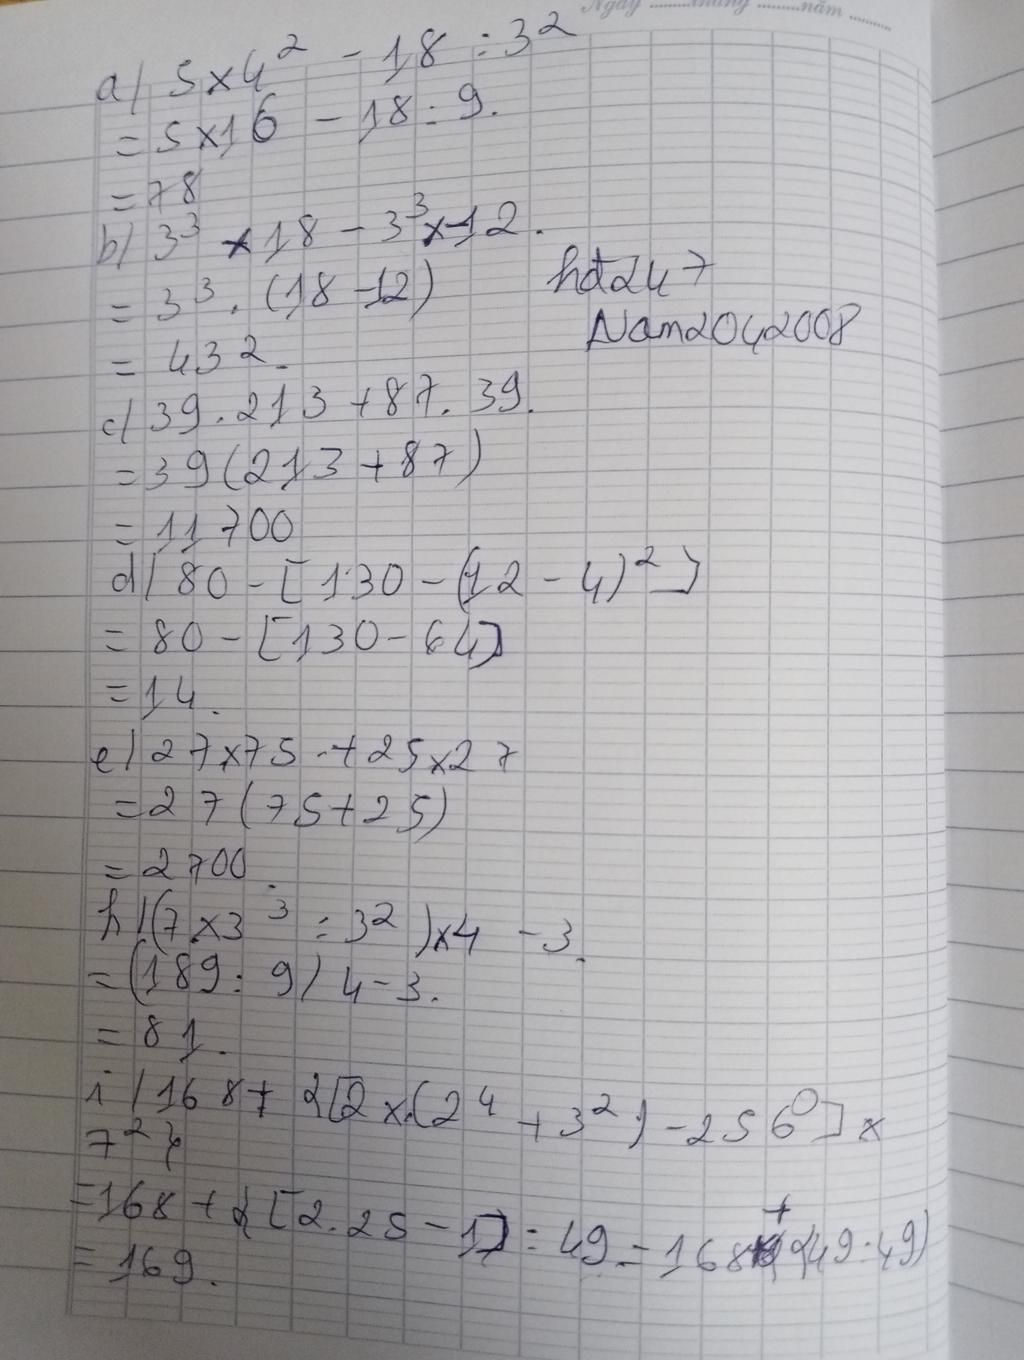 Ngày ........tháng ........năm ........
a/ 5×4² - 18 : 3²
= 5×16 - 18 : 9.
= 78
b/ 3³ × 18 - 3³ × 12.
= 3³ . (18 - 12)
hdt247
Nam2042008
= 432.
c/ 39 . 213 + 87 . 39.
= 39 (213 + 87)
= 11700
d/ 80 - [130 - (12 - 4)²]
= 80 - [130 - 64]
= 14.
e/ 27×75 + 25×27
= 27 (75 + 25)
= 2700.
h/ (7×3³ : 3²)×4 - 3.
= (189 : 9) 4 - 3.
= 81.
i/ 168 + {[2×.(2⁴ + 3²) - 256⁰] ×
7²}
= 168 + {[2.25 - 1] : 49 = 168 + (49 : 49)
= 169.